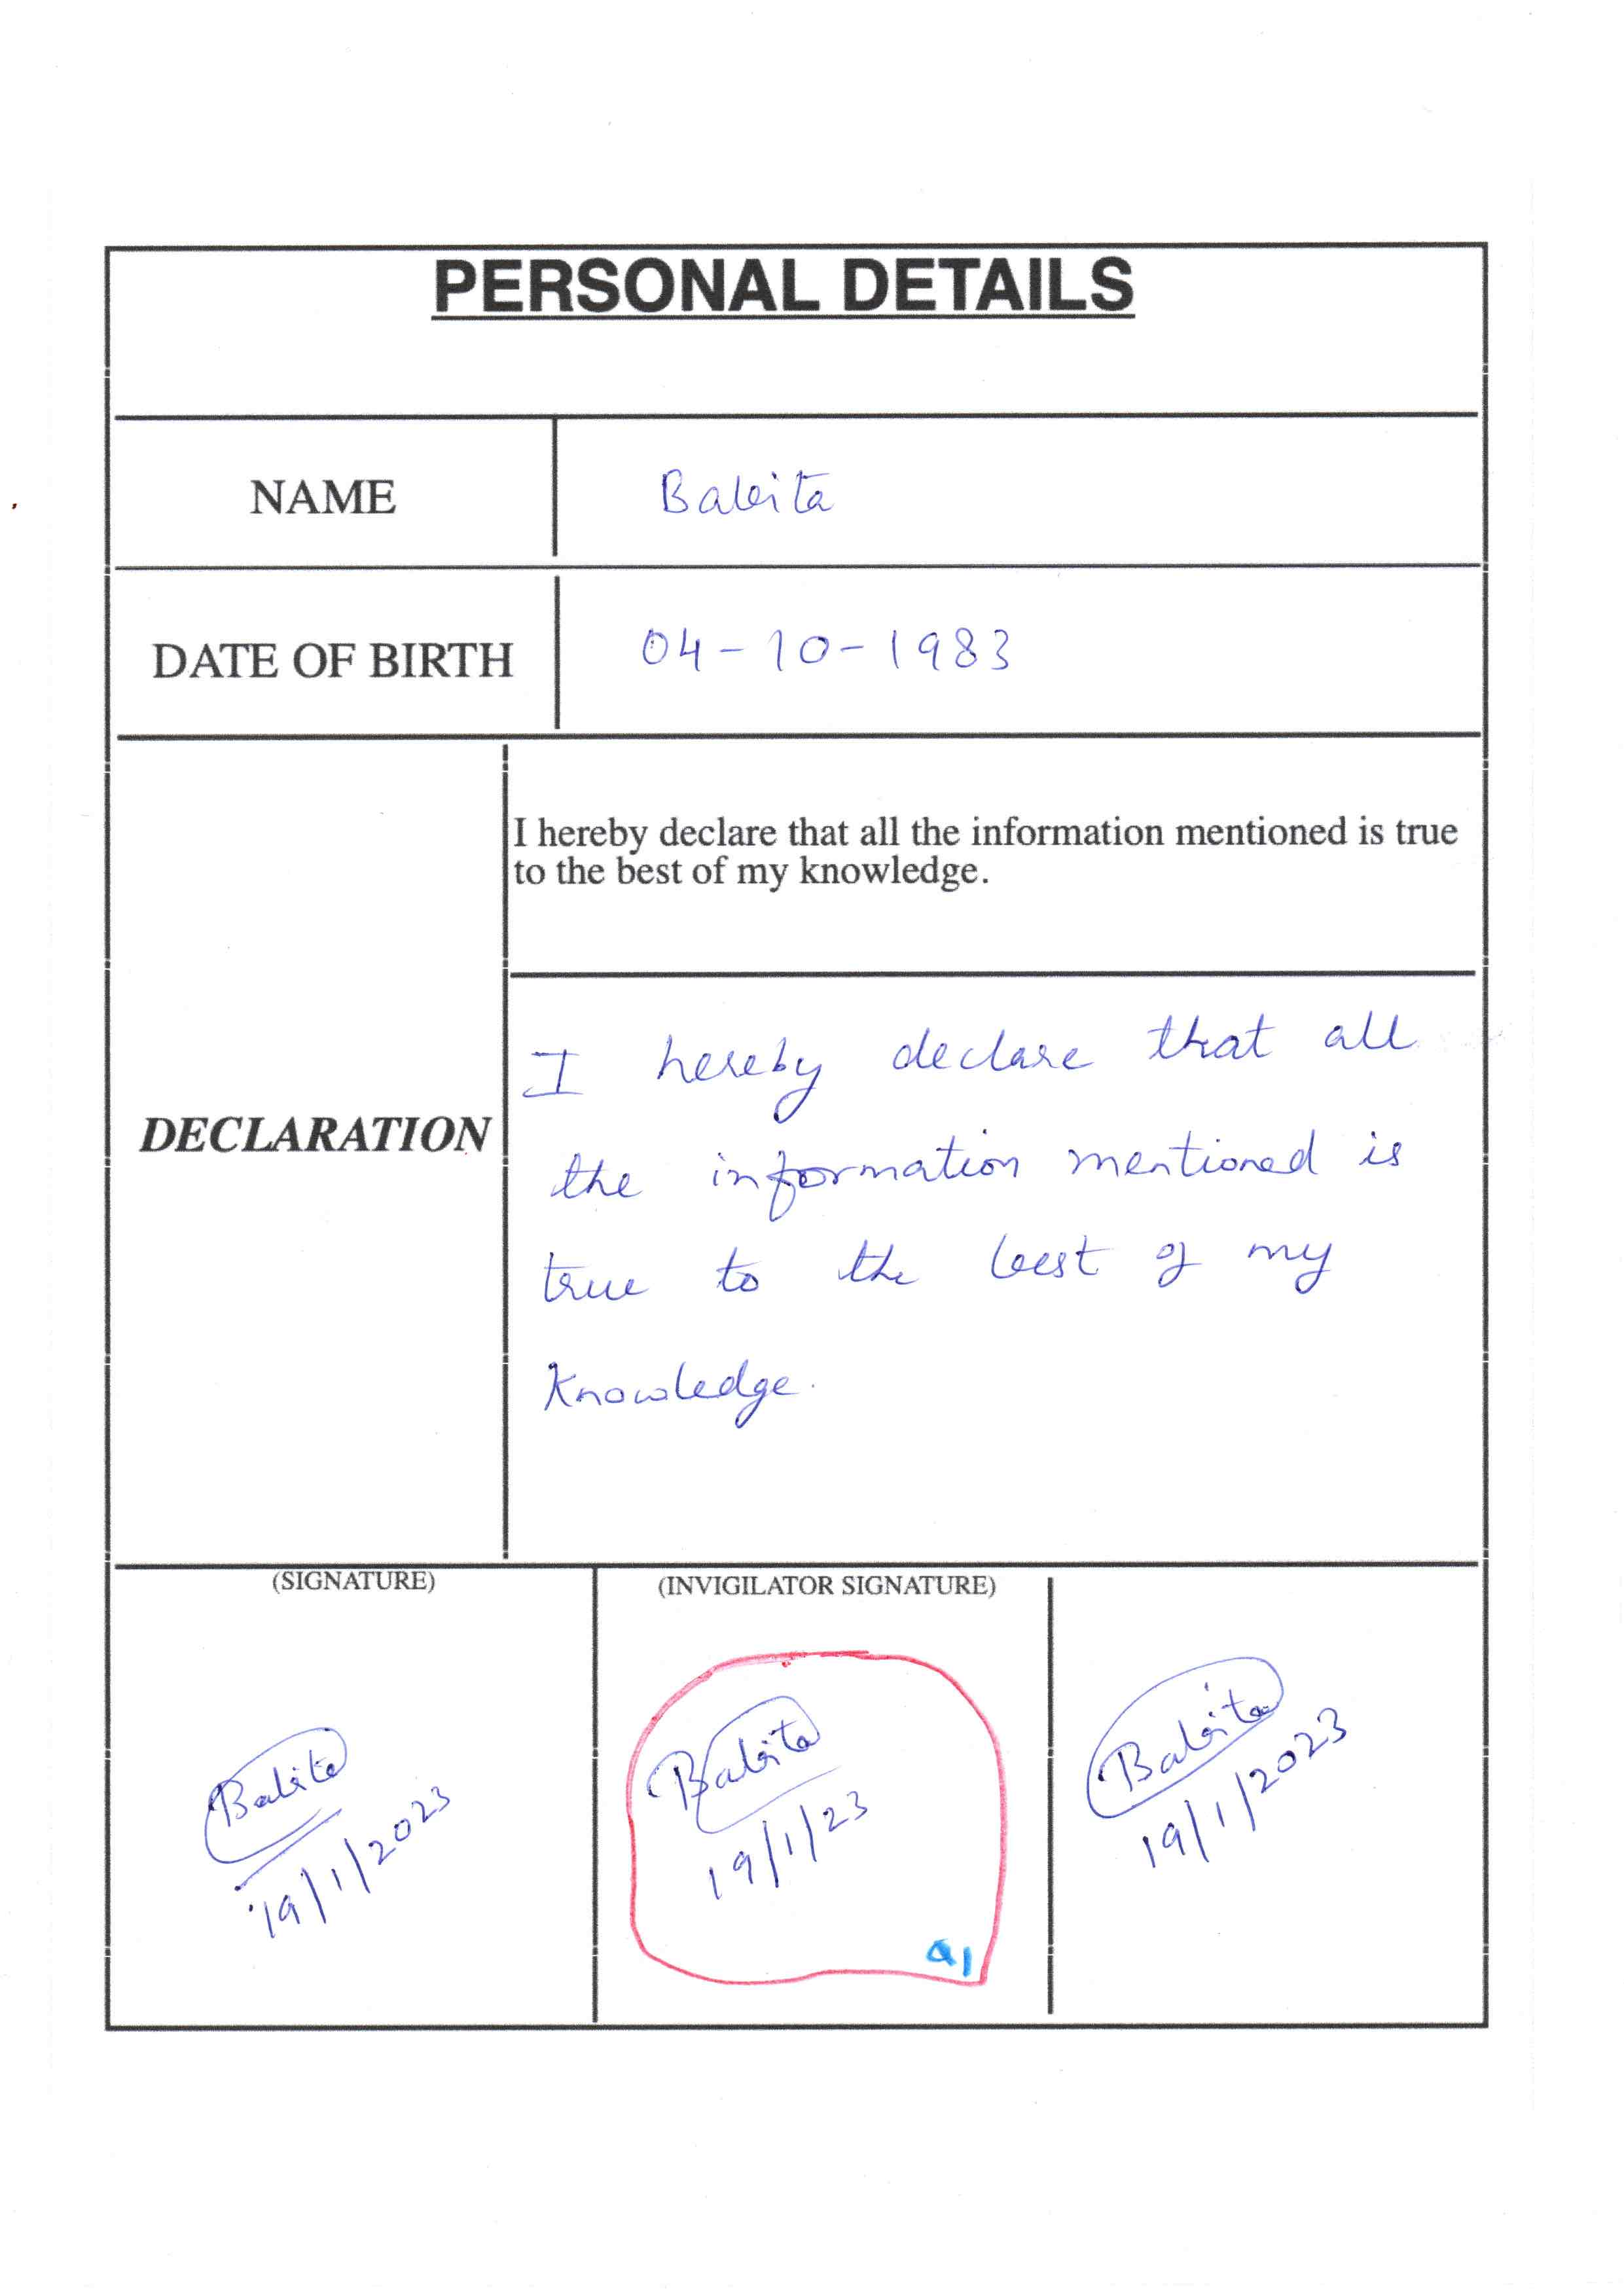 PERSONAL DETAILS
NAME
Babita
DATE OF BIRTH
04-10-1983
I hereby declare that all the information mentioned is true
to the best of my knowledge.
DECLARATION
I hereby declare that all
the information mentioned is
true to the best of my
Knowledge.
(SIGNATURE)
(INVIGILATOR SIGNATURE)
Babita
19/1/2023
Babita
19/1/23
Babita
19/1/2023